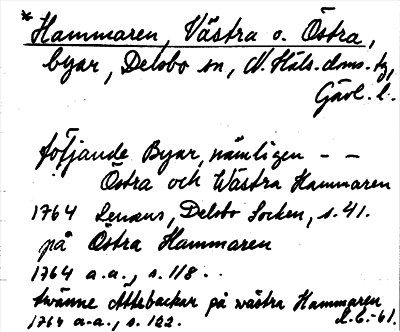 * Hammaren, Västra o. Östra,
byar, Delsbo sn, N. Häls. doms. tg,
Gävl. l.
följande Byar, nämligen - -
Östra och Wästra Hammaren
1764 Lenæus, Delsbo Socken, s. 41.
på Östra Hammaren
1764 a.a., s. 118.
twänne Ättebackar på wästra Hammaren
1764 a.a., s. 122. L.E.-61.